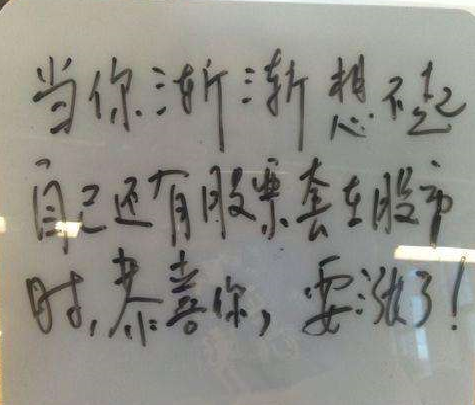 当你渐渐想不起
自己还有股票套在股市
时,恭喜你,要涨了!